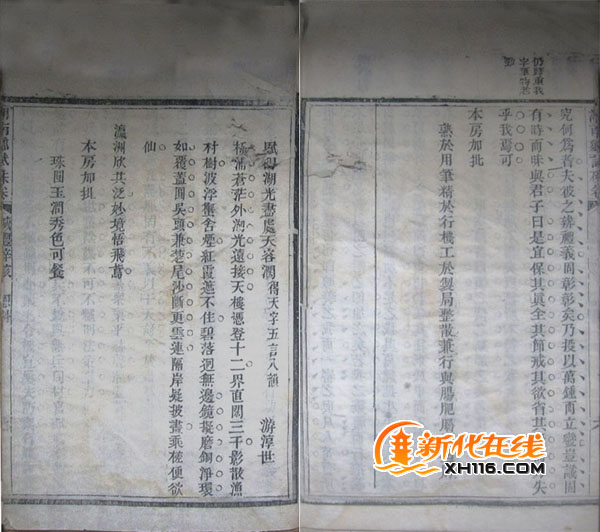 究何為者夫彼之辨禮義固彰彰矣乃授以萬鍾而立變是識固
有時而昧與君子曰是宜保其眞全其節戒其欲省其失
乎我焉可
本房加批
熟於用筆精於行機工於製局整散兼行與腸肥
賦得湖光盡處天容闊 得天字五言八韻 游淳世
極浦蒼茫外湖光遠接天樓憑登十二界直闊三千影散漁
村樹波浮蜑舍煙紅霞遮不住碧落迥無邊鏡擬磨銅淨環
如覆蓋圓吳頭兼楚尾沙斷更雲連隔岸疑披畫乘槎便欲
仙
瀛洲欣其泛妙境悟飛鳶
本房加批
珠圓玉潤秀色可餐
新化在线
XH116.com